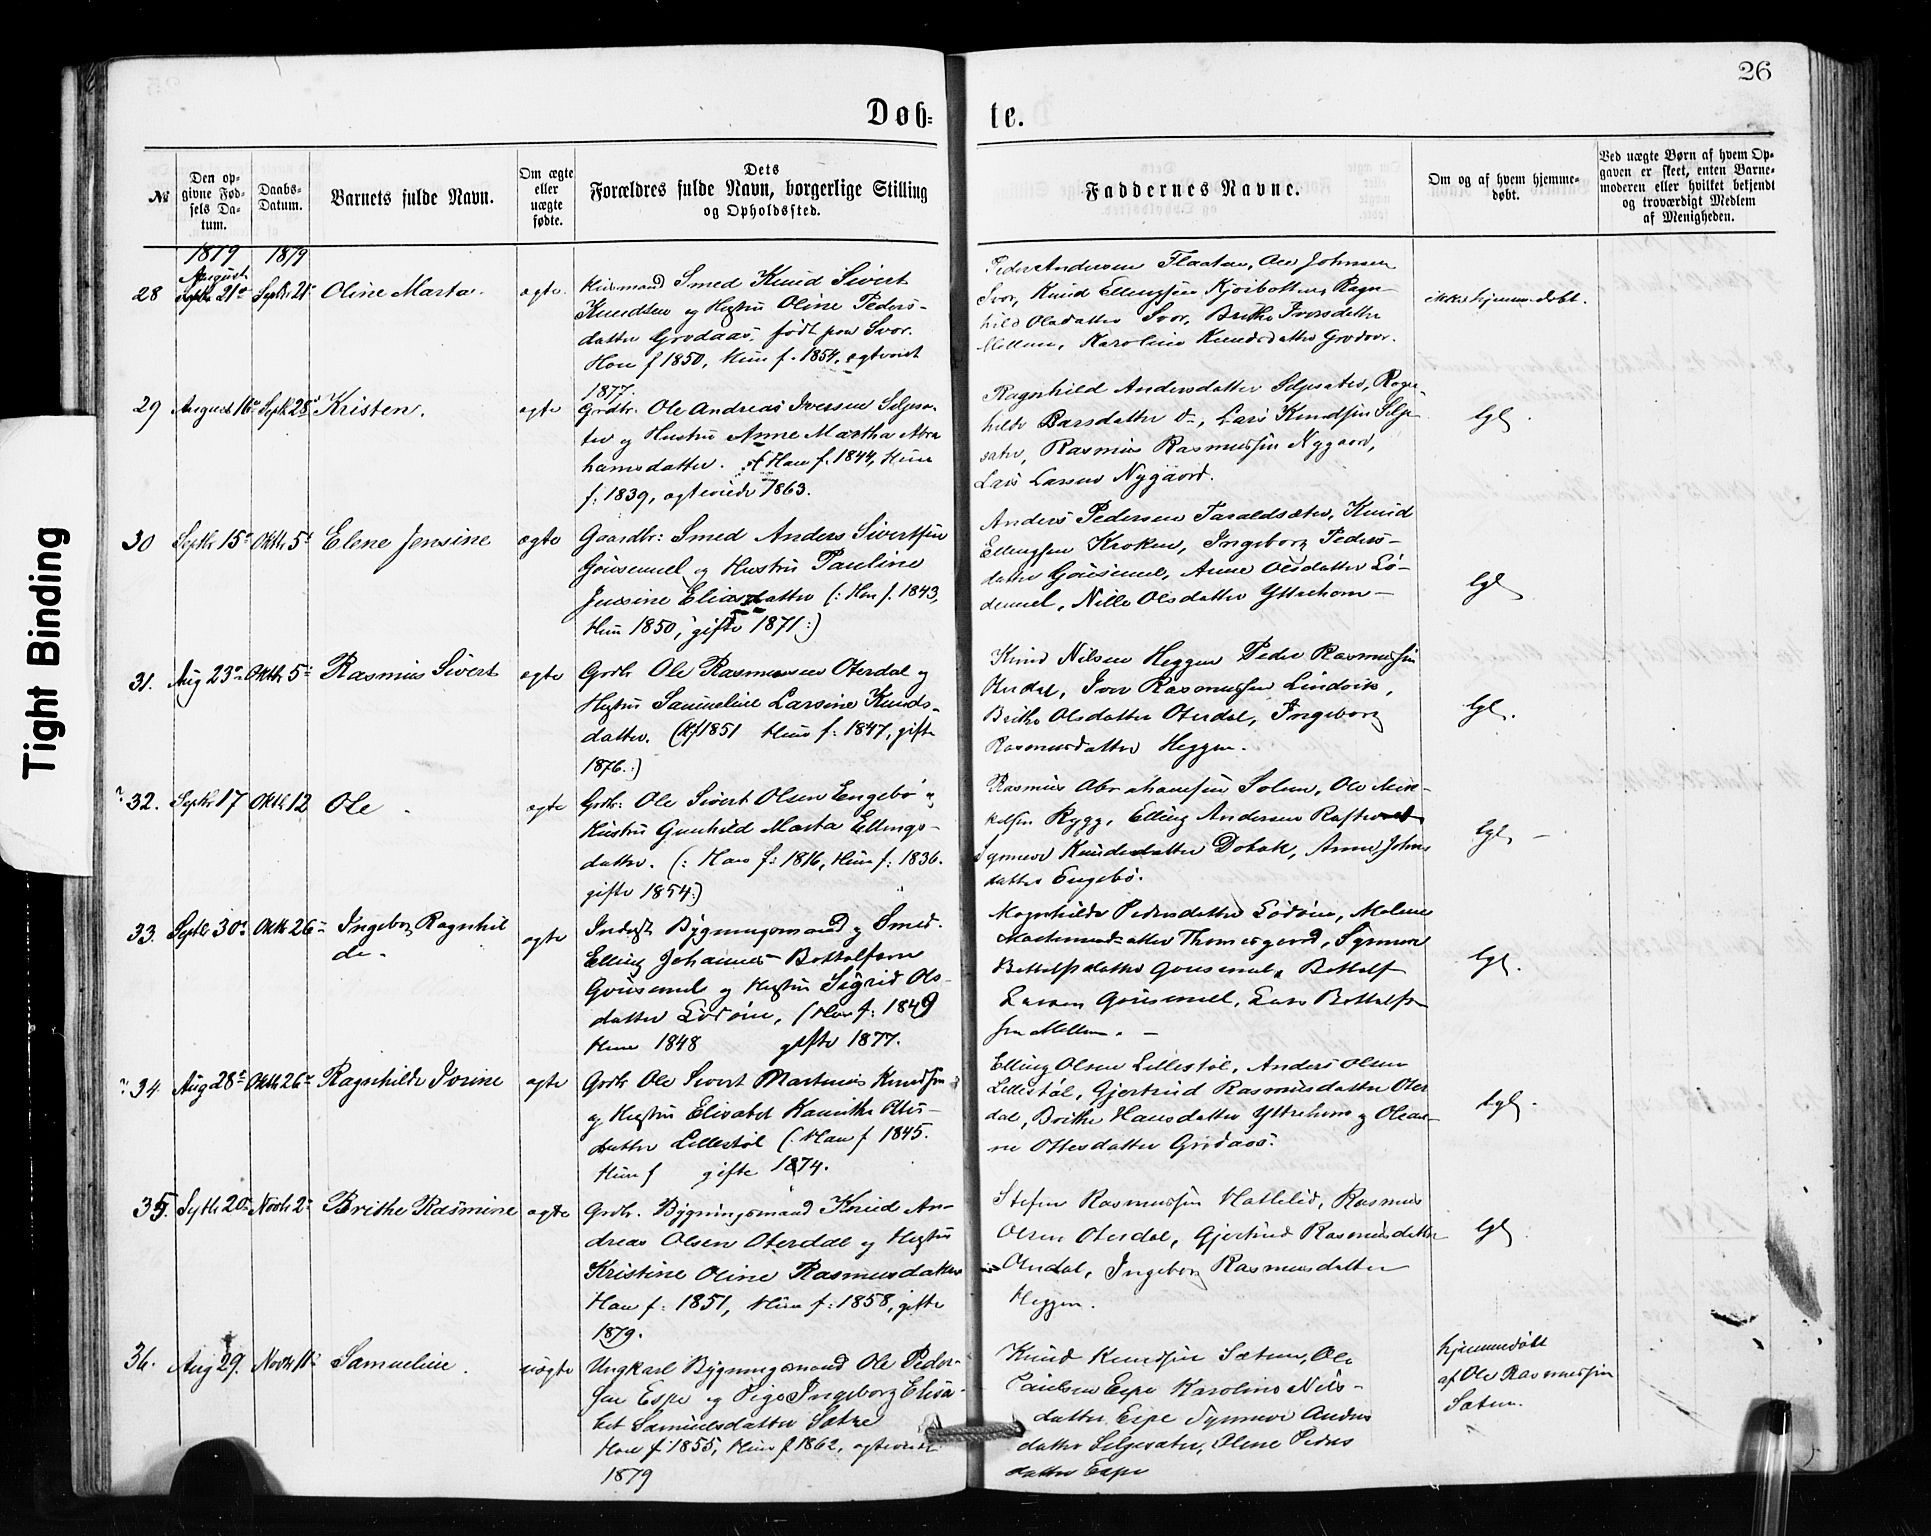 26
Døb-
te.
№
Den op-
givne Fød-
sels Da-
tum.
Daabs-
Datum.
Barnets fulde Navn.
Om ægte
eller
uægte
fødte.
Dets
Forældres fulde Navn, borgerlige Stilling
og Opholdssted.
Faddernes Navne.
Om og af hvem hjemme-
døbt.
Ved uægte Børn af hvem Op-
gaven er skeet, enten Barne-
moderen eller hvilket bekjendt
og troværdigt Medlem
af Menigheden.
1879 1879
28 August 21 Septr 21 Oline Marta. ægte.
Smed Knud Sivert
Knudsen og Hustru Oline Peders-
datter Grodaas, født paa Svor.
Han f 1850, Hun f. 1854, ægteviet
1877.
Peder Andersen Flaaten, Ole Johnsen
Svor, Knud Ellingsen Kjosbotten, Ragn-
hild Olsdatter Svor, Brithe Iversdatter
Mellem, Karoline Knudsdatter Grodaas.
ikke hjemmedøbt.
29 August 16 Septr 28 Kristen. ægte
Grdbr. Ole Andreas Iversen Seljese-
ter og Hustru Anne Martha Abra
hamsdatter. Han f. 1844, Hun
f. 1839, ægteviede 1863.
Ragnhild Andersdatter Seljesæter, Ragn
hilde Larsdatter do, Lars Knudsen Selje-
sæter, Rasmus Rasmussen Nygaard,
Lars Larsen Nygaard.
lgl.
30 Septr 15 Oktr 5 Elene Jensine ægte
Gaardbr: Smed Anders Sivertsen
Gousemel og Hustru Pauline
Jensine Eliasdatter (: Han f. 1843,
Hun 1850, gifte 1871:)
Anders Pedersen Taraldsæter, Knud
Ellingsen Kroken, Ingeborg Peders-
datter Gousemel, Anne Olsdatter Lø-
demel, Nille Olsdatter Yttrehorn -
lgl.
31. Aug 23 Oktr 5 Rasmus Sivert ægte
Grdbr Ole Rasmussen Oterdal og
Hustru Samueline Larsine Knuds-
datter. (Hf 1851 Hun f: 1847, gifte
1876.:)
Knud Nilsen Heggen Peder Rasmussen
Oterdal, Iver Rasmussen Lindvik,
Brithe Olsdatter Oterdal, Ingeborg
Rasmusdatter Heggen.
lgl.
32. Septr 17 Oktr 12 Ole ægte
Grdbr: Ole Sivert Olsen Engebø og
Hustru Gunhild Marta Ellings-
datter. (: Han f: 1816, Hun f: 1836.
gifte 1854:)
Rasmus Abrahamsen Solem, Ole Mik-
kelsen Rygg, Elling Andersen Raftevold
Synneve Knudsdatter Dobak, Anne Johns
datter Engebø.
lgl.
33. Septr 30 Oktr 26 Ingeborg Ragnhil
de. ægte
Inderst Bygningsmand og Smed.
Elling Johannes Bottolfsen
Gousemel og Hustru Sigrid Ols-
datter Lødøen, (Han f: 1849
Hun 1848 gifte 1877.
Magnhilde Pedersdatter Lødøen, Malene
Martinusdatter Thomasgaard, Synneve
Bottolfsdatter Gousemel, Bottolf
Larsen Gousemel, Lars Bottolf-
sen Mellem. -
lgl.
34 Aug 28 Oktr 26 Ragnhilde Josine ægte
Grdbr Ole Sivert Martinus Knudsen
og Hustru Elisabet Kamitha Ottes-
datter Lillestøl (: Han f 1845.
Hun f gifte 1874.
Elling Olsen Lillestøl, Anders Olsen
Lillestøl, Gjertrud Rasmusdatter Oter
dal, Brithe Hansdatter Yttrehorn og Oleane
Ottesdatter Grodaas.
lgl.
35. Septr 20 Novbr 2 Brithe Rasmine ægte
Grdbr. Bygningsmand Knud An-
dreas Olsen Oterdal og Hustru
Kristine Oline Rasmusdatter
Han f: 1851, Hun f: 1858, gifte
1879.
Stefen Rasmussen Hatlelid, Rasmus
Olsen Oterdal, Gjertrud Rasmusdatter
Oterdal, Ingeborg Rasmusdatter
Heggen.
lgl.
36. Aug 29. Novbr 11 Samueline. uægte
Ungkarl Bygningsmand Ole Peder-
sen Espe og Pige Ingeborg Elisa-
bet Samuelsdatter Sætre
Han f: 1855, Hun f 1862, ægteviet
1879
Knud Knudsen Sætren, Ole
Paulsen Espe Karoline Nils-
datter Espe Synneve Anders
datter Seljesæter, Olene Peders
datter Espe
hjemmedøbt
af Ole Rasmussen
Sætren.
Tight Binding